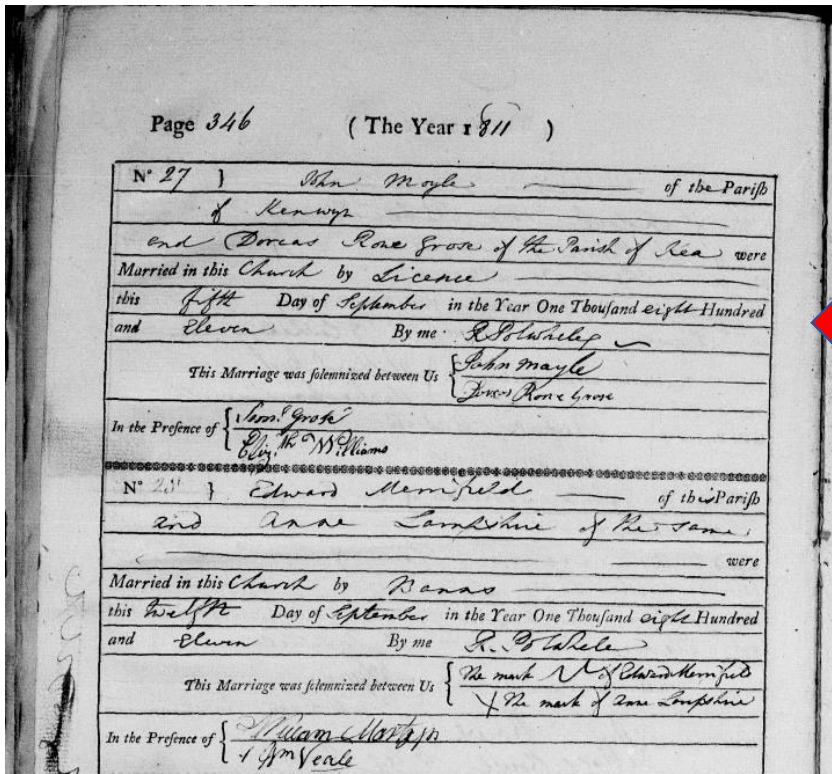 Page 346 ( The Year 1811 )
Nº 27 } John Moyle of the Parish
of Kenwyn
and Dorcas Rone Grose of the Parish of Kea were
Married in this Church by Licence
this fifth Day of September in the Year One Thousand eight Hundred
and Eleven By me R Polwhele
This Marriage was solemnized between Us { John Moyle
Dorcas Rone Grose
In the Presence of { Grose
Eliz.th Williams
Nº 28 } Edward Merrifield of this Parish
and Anne Lampshire of the same
were
Married in this Church by Banns
this twelfth Day of September in the Year One Thousand eight Hundred
and Eleven By me R. Polwhele
This Marriage was solemnized between Us { The mark of Edward Merrifield
X The mark of Anne Lampshire
In the Presence of { William Martyn
Wm Veale